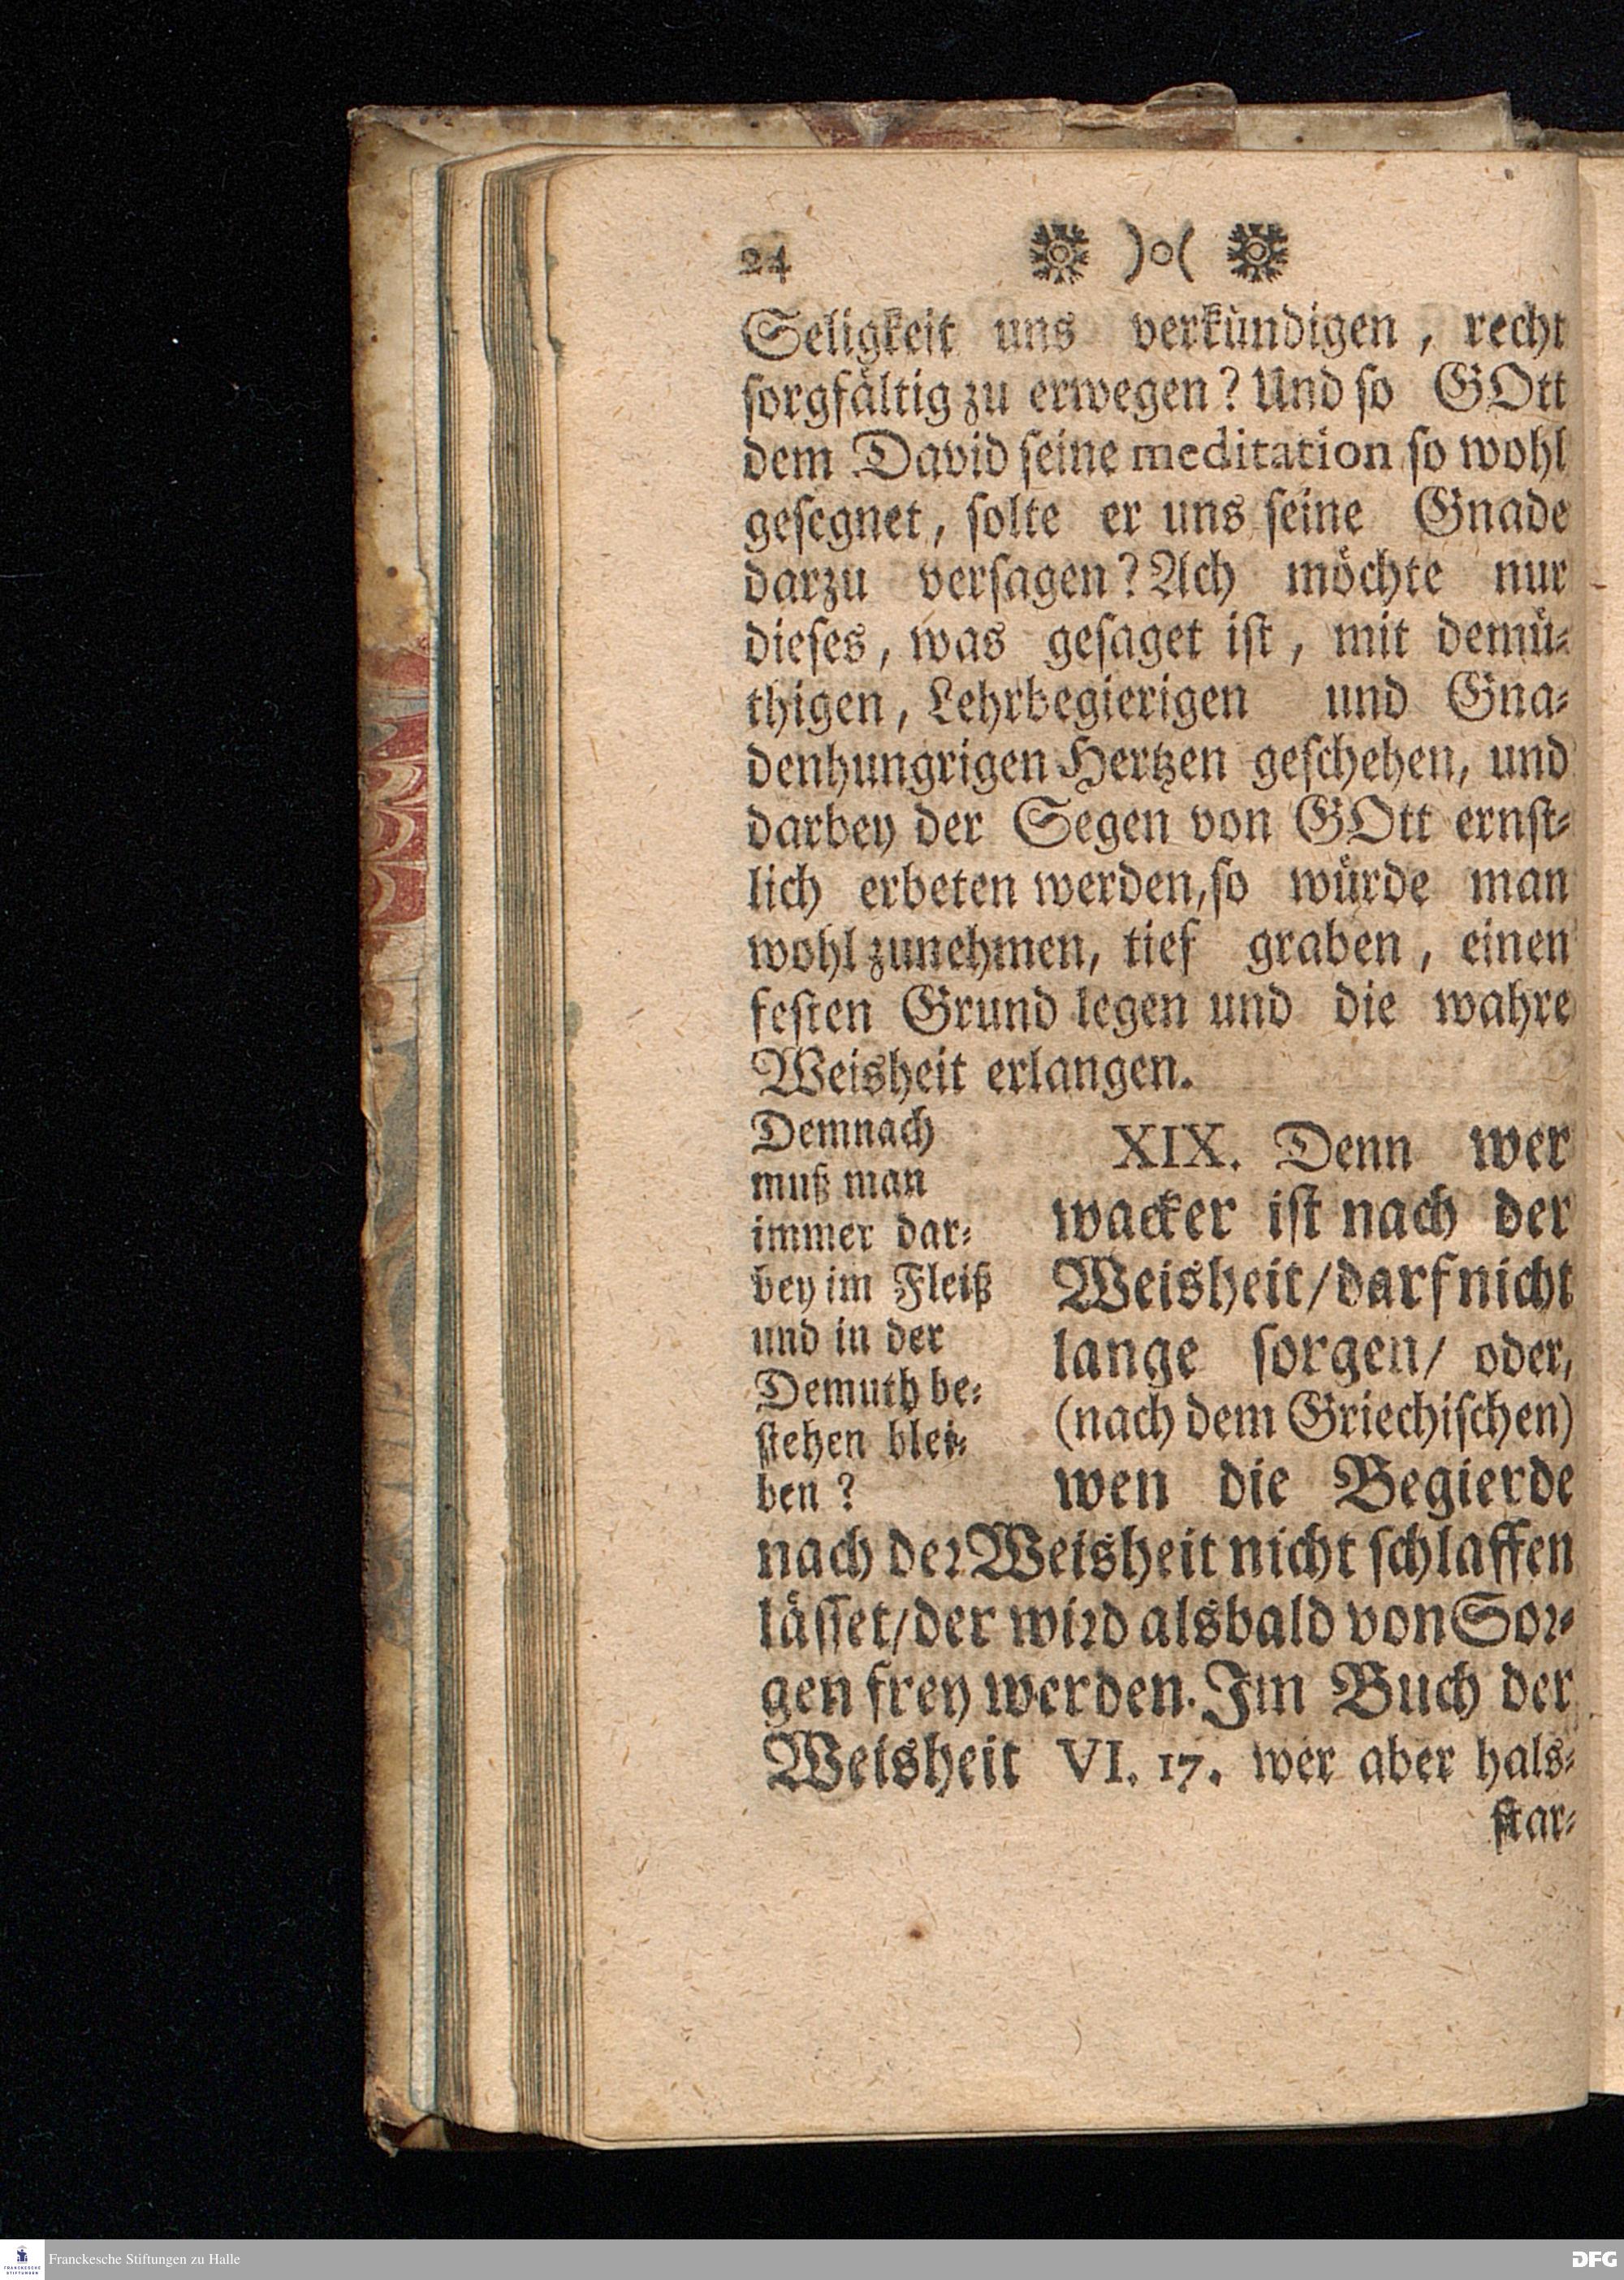 24 )o(
Seligkeit uns verkündigen, recht
ſorgfältig zu erwegen? Und ſo GOtt
dem David ſeine meditation ſo wohl
geſegnet, ſolte er uns ſeine Gnade
darzu verſagen? Ach möchte nur
dieſes, was geſaget iſt, mit demü-
thigen, Lehrbegierigen und Gna-
denhungrigen Hertzen geſchehen, und
darbey der Segen von GOtt ernſt-
lich erbeten werden, ſo würde man
wohl zunehmen, tief graben, einen
feſten Grund legen und die wahre
Weisheit erlangen.
Demnach
muß man
immer dar-
bey im Fleiß
und in der
Demuth be-
ſtehen blei-
ben?
XIX. Denn wer
wacker iſt nach der
Weisheit/darf nicht
lange ſorgen/ oder,
(nach dem Griechiſchen)
wen die Begierde
nach der Weisheit nicht ſchlaffen
läſſet/der wird alsbald von Sor-
gen frey werden. Im Buch der
Weisheit VI. 17. wer aber hals-
ſtar-
Franckesche Stiftungen zu Halle
FRANCKESCHE
STIFTUNGEN
DFG